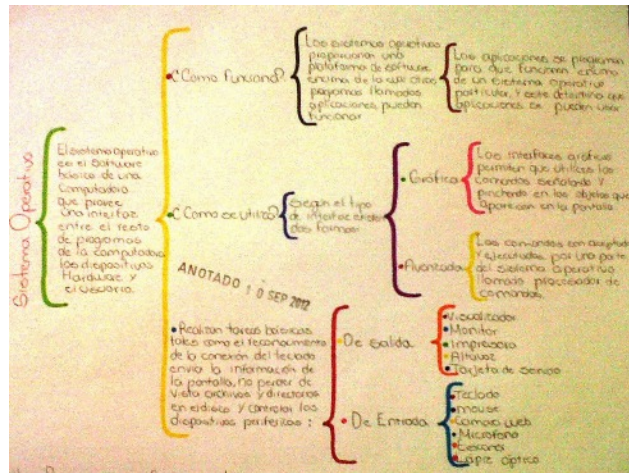 Sistema Operativo
El sistema operativo
es el software
básico de una
Computadora
que provee
una interfaz
entre el resto
de programas
de la computadora
los dispositivos
Hardware y
el usuario.
¿Como funciona?
Los sistemas operativos
proporcionan una
plataforma de software
encima de la cual otros
programas llamados
aplicaciones puedan
funcionar
Las aplicaciones se programan
para que funcionen encima
de un sistema operativo
particular, y este determina que
aplicaciones se pueden usar
¿Como se utiliza?
Según el tipo
de interfaz existen
dos formas:
Gráfica
Las interfaces gráficas
permiten que utilices los
comandos señalando y
pinchando en los objetos que
aparecen en la pantalla
Avanzada
Los comandos son aceptados
y ejecutados por una parte
del sistema operativo
llamado procesador de
comandos.
ANOTADO 10 SEP 2012
Realizan tareas básicas
tales como el reconocimiento
de la conexión del teclado
envia la información de
la pantalla, no perder de
vista archivos y directorios
en el disco y controlar los
dispositivos perifericos:
De salida
Visualizador
Monitor
Impresora
Altavoz
Tarjeta de sonido
De Entrada
Teclado
mouse
Camara web
Microfono
Escaner
Lapiz óptico